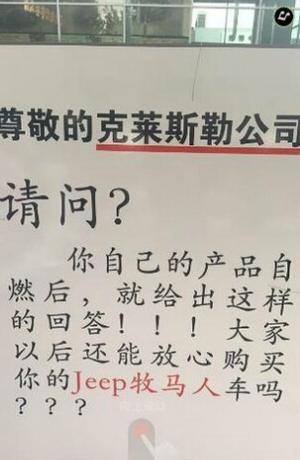 尊敬的克莱斯勒公司
请问?
你自己的产品自
燃后，就给出这样
的回答！！！大家
以后还能放心购买
你的Jeep牧马人车吗
？？？